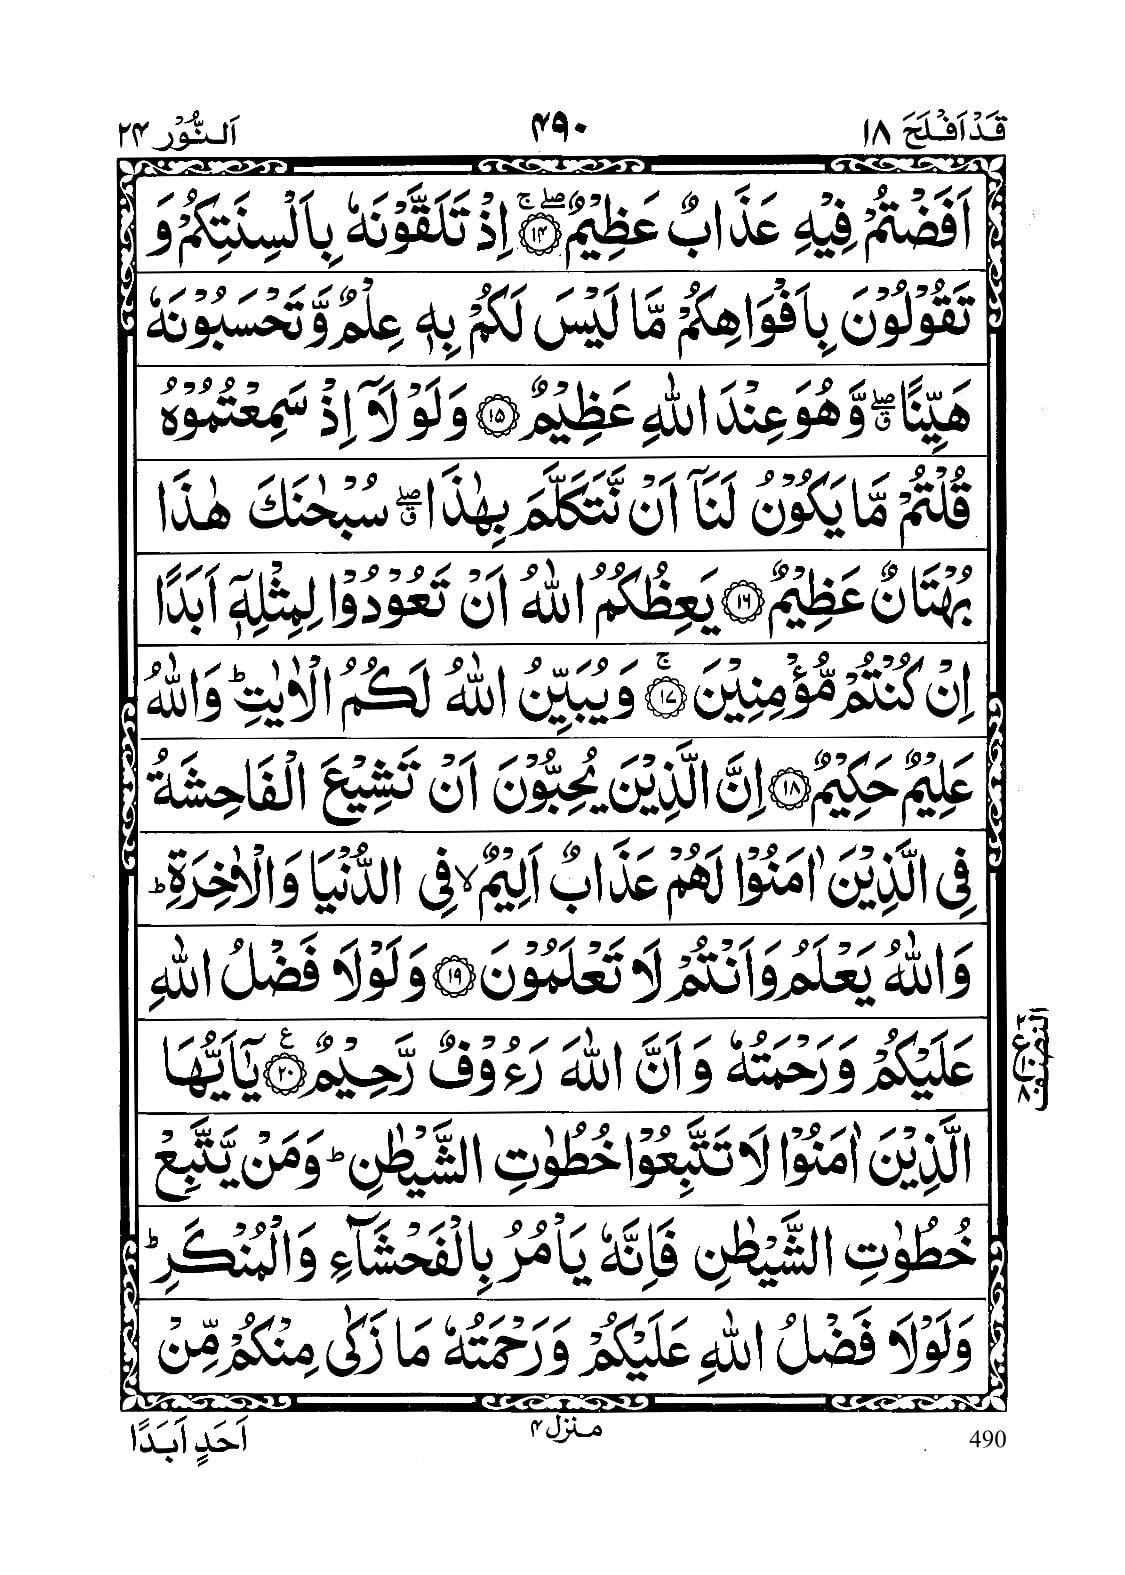 قَدْ اَفْلَحَ ١٨
۴۹۰
اَلنُّوْر ٢۴
اَفَضْتُمْ فِيْهِ عَذَابٌ عَظِيْمٌ ۖۚ ﴿١۴﴾ اِذْ تَلَقَّوْنَهٗ بِاَلْسِنَتِكُمْ وَ
تَقُوْلُوْنَ بِاَفْوَاهِكُمْ مَّا لَيْسَ لَكُمْ بِهٖ عِلْمٌ وَّتَحْسَبُوْنَهٗ
هَيِّنًا ۖۗ وَّهُوَ عِنْدَ اللّٰهِ عَظِيْمٌ ﴿١٥﴾ وَلَوْ لَاۤ اِذْ سَمِعْتُمُوْهُ
قُلْتُمْ مَّا يَكُوْنُ لَنَاۤ اَنْ نَّتَكَلَّمَ بِهٰذَا ۖۗ سُبْحٰنَكَ هٰذَا
بُهْتَانٌ عَظِيْمٌ ﴿١٦﴾ يَعِظُكُمُ اللّٰهُ اَنْ تَعُوْدُوْا لِمِثْلِهٖۤ اَبَدًا
اِنْ كُنْتُمْ مُّؤْمِنِيْنَ ۚ ﴿١٧﴾ وَيُبَيِّنُ اللّٰهُ لَكُمُ الْاٰيٰتِ ؕ وَاللّٰهُ
عَلِيْمٌ حَكِيْمٌ ﴿١٨﴾ اِنَّ الَّذِيْنَ يُحِبُّوْنَ اَنْ تَشِيْعَ الْفَاحِشَةُ
فِى الَّذِيْنَ اٰمَنُوْا لَهُمْ عَذَابٌ اَلِيْمٌ ۙ فِى الدُّنْيَا وَالْاٰخِرَةِ ؕ
وَاللّٰهُ يَعْلَمُ وَاَنْتُمْ لَا تَعْلَمُوْنَ ﴿١٩﴾ وَلَوْلَا فَضْلُ اللّٰهِ
عَلَيْكُمْ وَرَحْمَتُهٗ وَاَنَّ اللّٰهَ رَءُوْفٌ رَّحِيْمٌ ﴿٢٠﴾ ع يٰۤاَيُّهَا
الَّذِيْنَ اٰمَنُوْا لَا تَتَّبِعُوْا خُطُوٰتِ الشَّيْطٰنِ ؕ وَمَنْ يَّتَّبِعْ
خُطُوٰتِ الشَّيْطٰنِ فَاِنَّهٗ يَاْمُرُ بِالْفَحْشَآءِ وَالْمُنْكَرِ ؕ
وَلَوْلَا فَضْلُ اللّٰهِ عَلَيْكُمْ وَرَحْمَتُهٗ مَا زَكٰى مِنْكُمْ مِّنْ
النصف
منزل ۴
اَحَدٍ اَبَدًا
490